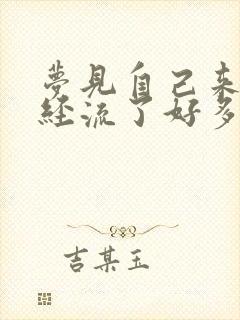 夢見自己來
經流了好多
吉某玉